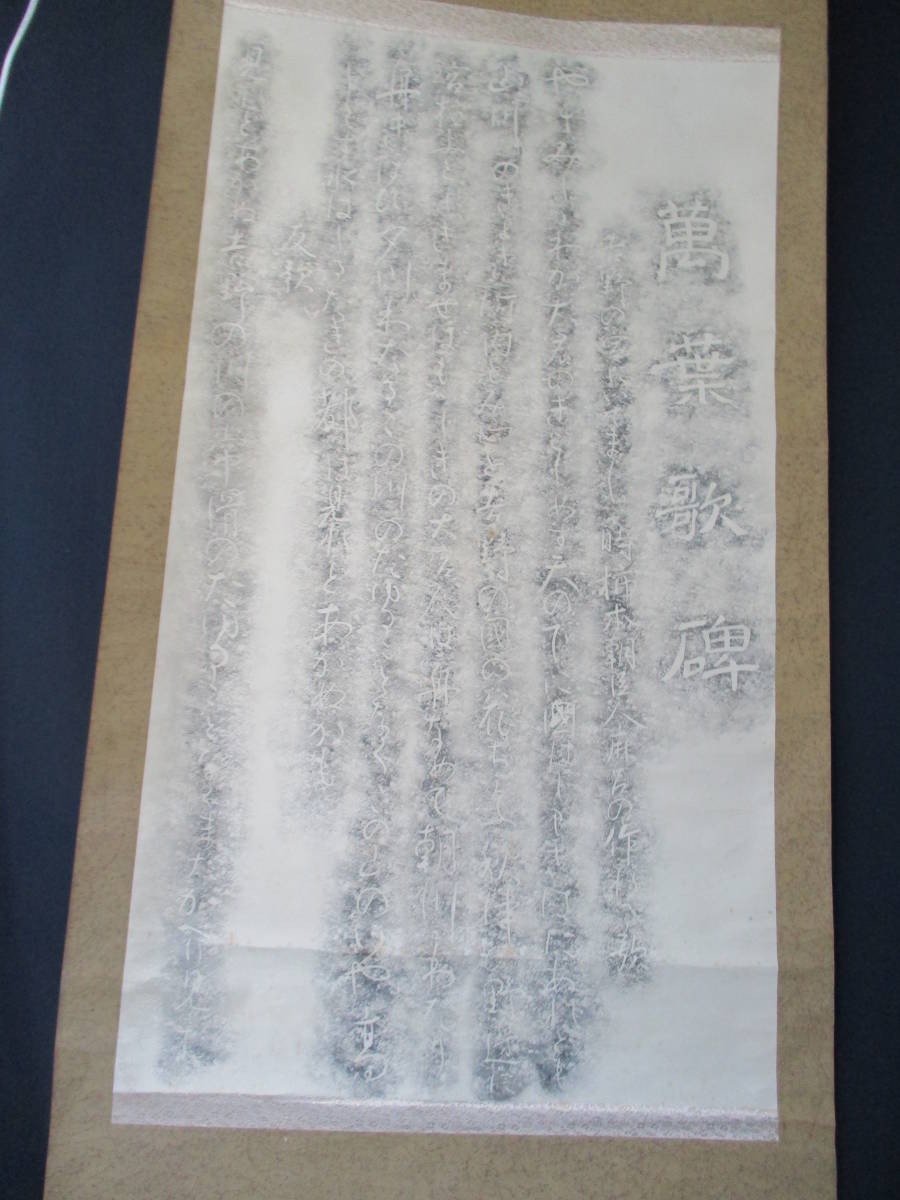 萬葉歌碑
吉野の宮に出でましし時柿本朝臣人麻呂の作れる歌
やすみししわが大君のきこしめす天の下に國はしもさはにあれども
山川のきよき河内とみこころを吉野の國の花ちらふ秋津の野辺に
宮柱ふとしきませばももしきの大宮人は舟なめて朝川わたり
舟きほひ夕川わたるこの川のたゆることなくこの山のいや高
水はしるたきの都は見れどあかぬかも
反歌
見れどあかぬ吉野の川の常滑のたゆることなくまたかへり見む